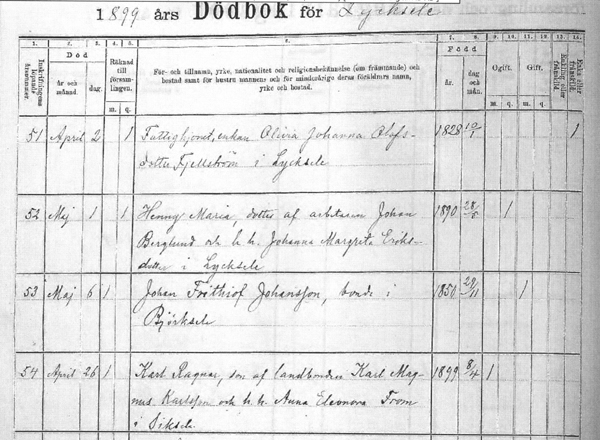 1899 års Dödbok för Lycksele
1. 2. 3. 4. 5. 6. 7. 8. 9. 10. 11. 12. 13. 14.
Inskrifningens löpande årsnummer. Död Räknad till församlingen. För- och tillnamn, yrke, nationalitet och religionsbekännelse (om främmande) och Född Ogift. Gift. Enka eller
år och månad. dag. bostad samt för hustru mannens och för minderårige deras föräldrars namn, år. dag och mån.
m. q. yrke och bostad. m. q. m. q.
51 April 2 1 Fattighjonet, enkan Olivia Johanna Olofs- 1828 19/1 1
dotter Fjellström i Lycksele
52 Maj 1 1 Henny Maria, dotter af arbetaren Johan 1890 28/5 1
Berglund och h. h. Johanna Margreta Eriks-
dotter i Lycksele
53 Maj 6 1 Johan Frithiof Johansson, bonde i 1850 29/11 1
Björksele
54 April 26 1 Karl Ragnar, son af landbonden Karl Mag- 1899 8/4 1
nus Karlsson och h. h. Anna Eleonora From
i Siksele